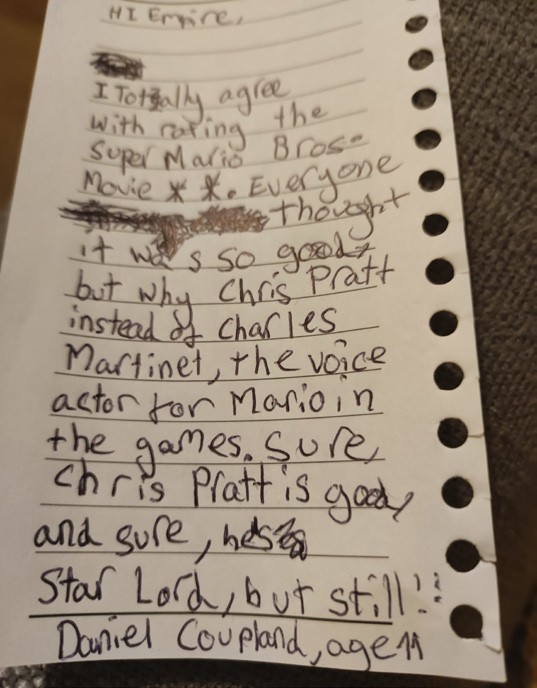 HI Empire,
I Totally agree
with rating the
Super Mario Bros.
Movie * *. Everyone
thought
it was so good,
but why Chris Pratt
instead of Charles
Martinet, the voice
actor for Mario in
the games. Sure,
Chris Pratt is good,
and sure, hes
Star Lord, but still!!
Daniel Coupland, age 11